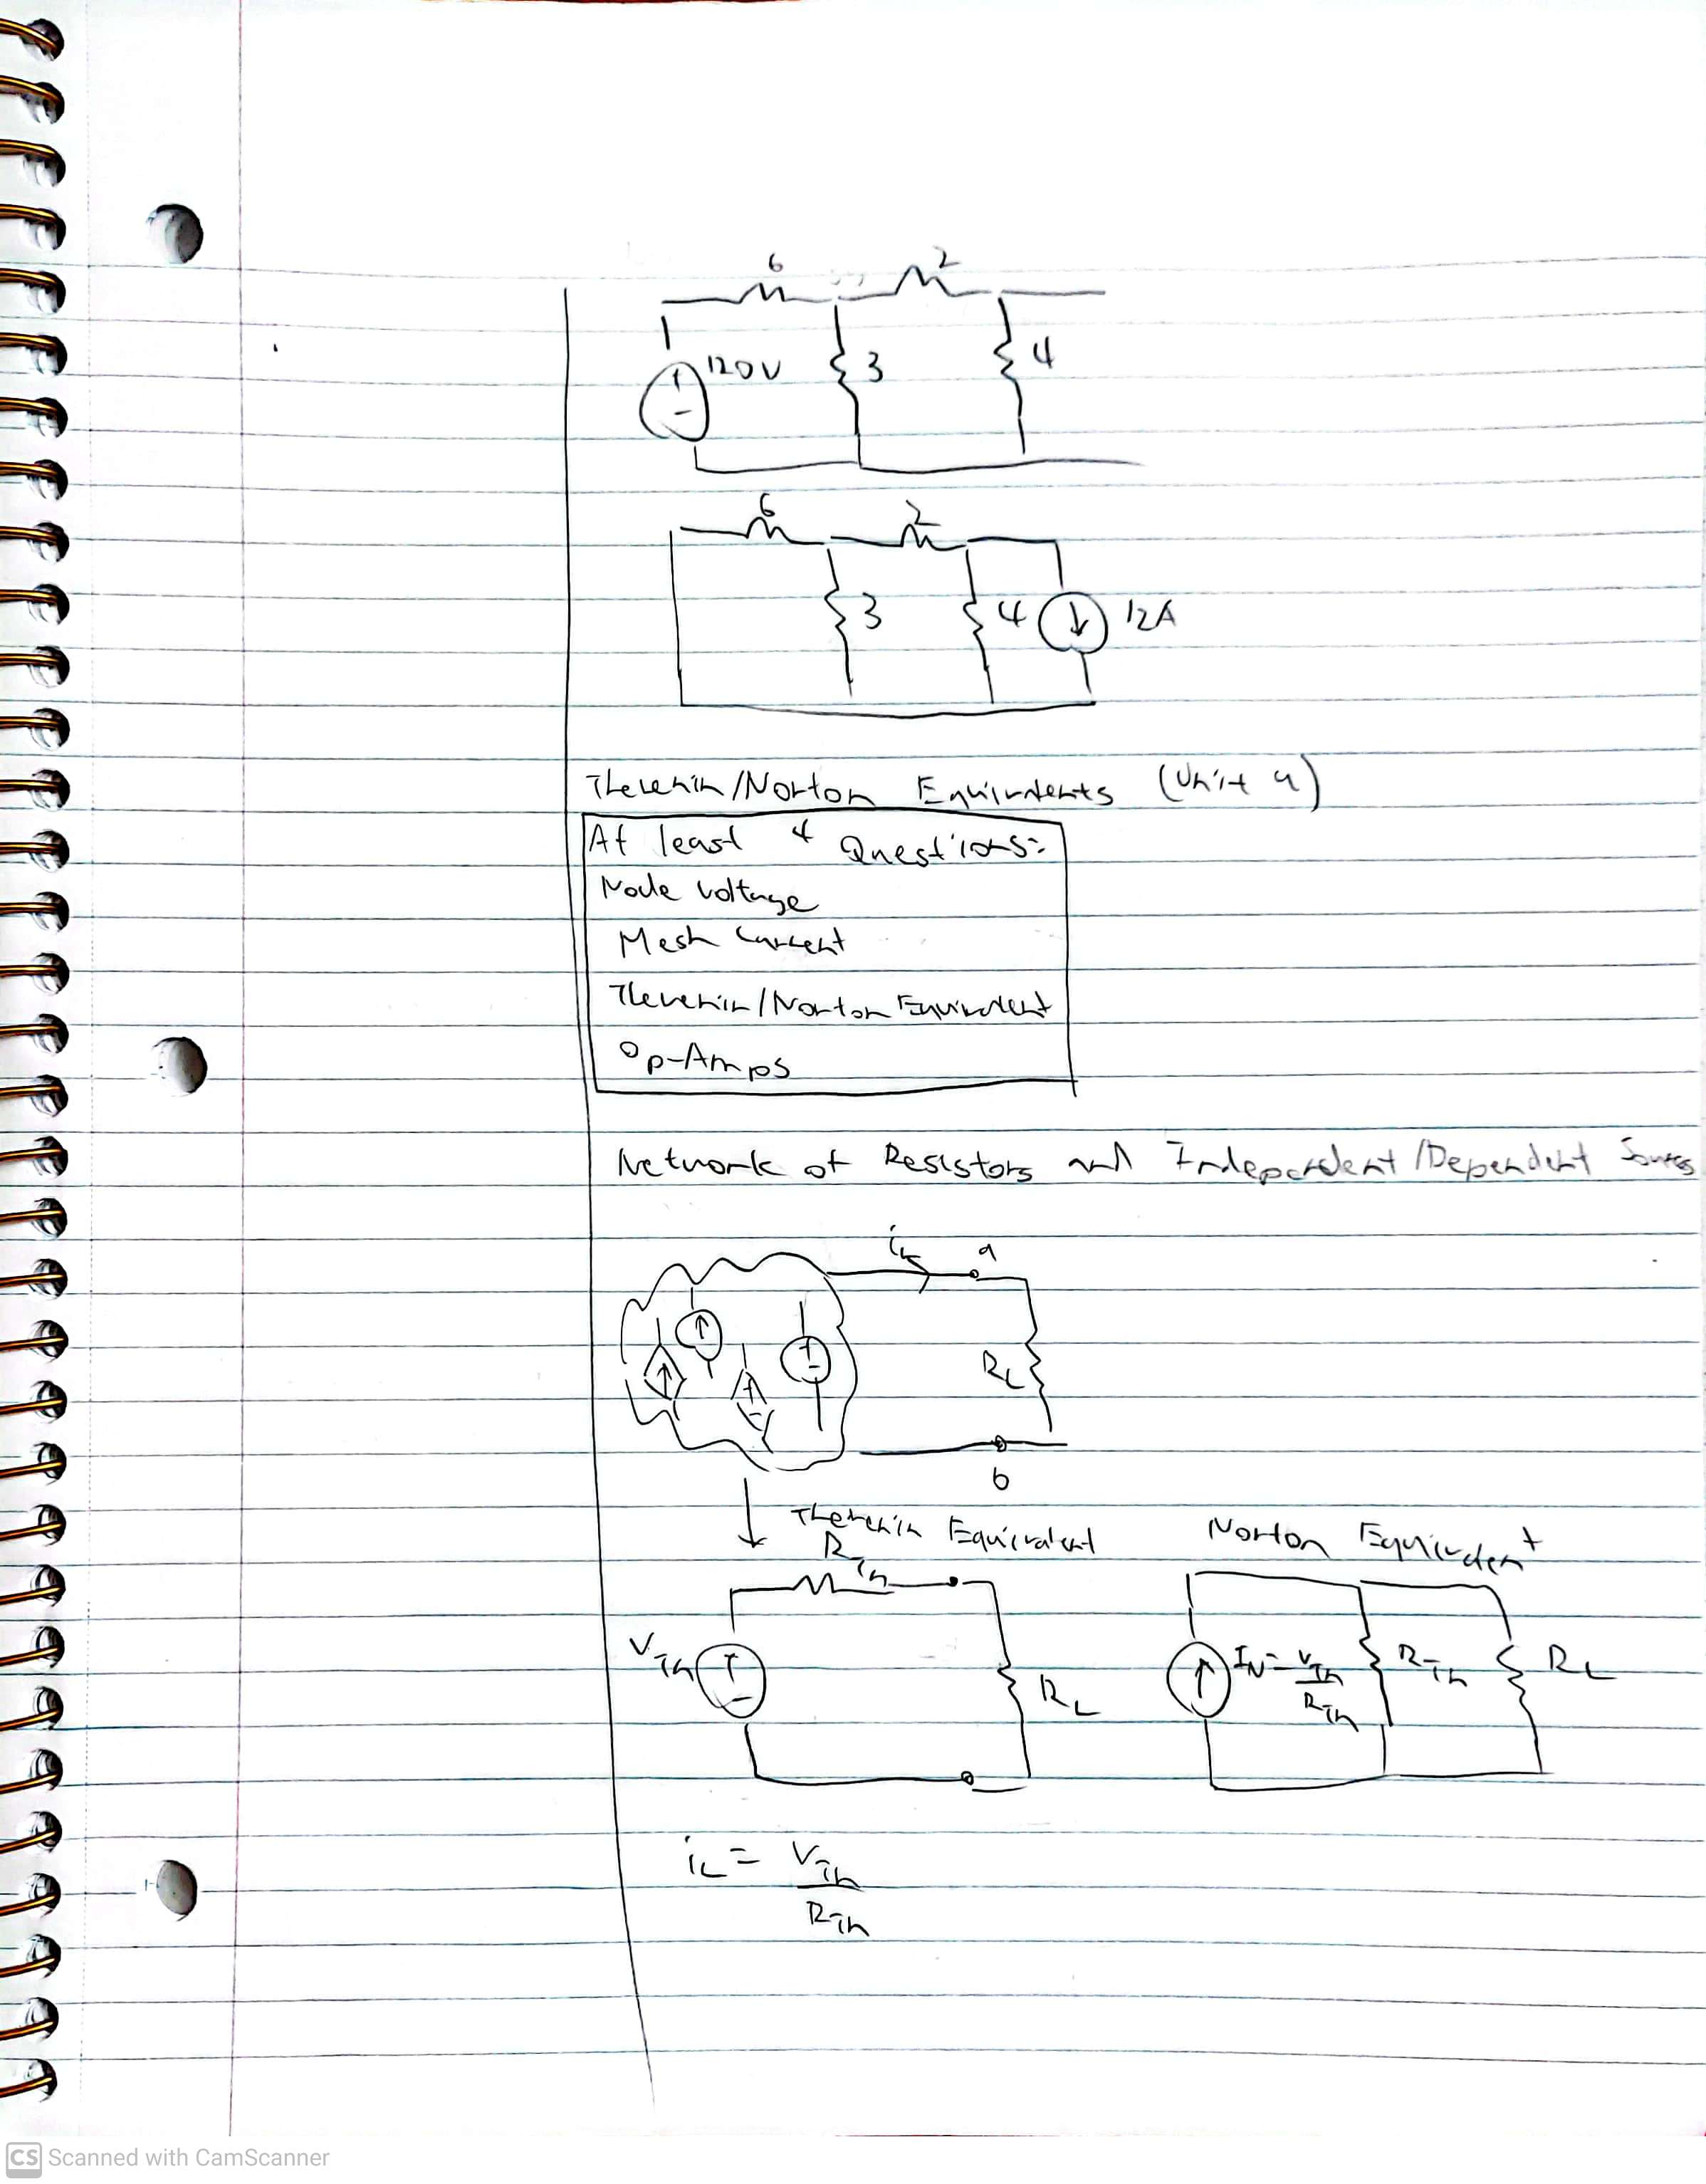 6 2
120V 3 4
6 2
3 4 12A
Thevenin/Norton Equivalents (Unit 4)
At least 4 Questions:
Node Voltage
Mesh Current
Thevenin/Norton Equivalent
Op-Amps
Network of Resistors and Independent/Dependent Sources
iL a
RL
b
Thevenin Equivalent Norton Equivalent
RTh
VTh RL IN = VTh/RTh RTh RL
iL = VTh/RTh
CS Scanned with CamScanner